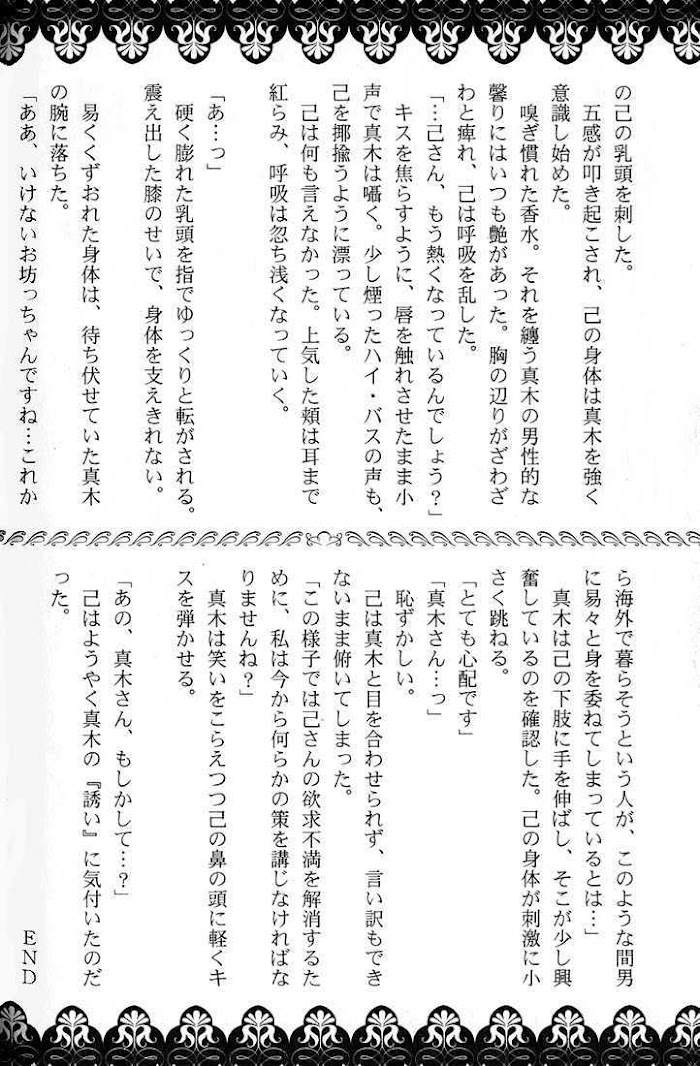 の己の乳頭を刺した。
　五感が叩き起こされ、己の身体は真木を強く
意識し始めた。
　嗅ぎ慣れた香水。それを纏う真木の男性的な
馨りにはいつも艶があった。胸の辺りがざわざ
わと痺れ、己は呼吸を乱した。
「…己さん、もう熱くなっているんでしょう？」
　キスを焦らすように、唇を触れさせたまま小
声で真木は囁く。少し煙ったハイ・バスの声も、
己を揶揄うように漂っている。
　己は何も言えなかった。上気した頬は耳まで
紅らみ、呼吸は忽ち浅くなっていく。
「あ…っ」
　硬く膨れた乳頭を指でゆっくりと転がされる。
震え出した膝のせいで、身体を支えきれない。
　易くくずおれた身体は、待ち伏せていた真木
の腕に落ちた。
「ああ、いけないお坊っちゃんですね…これか
ら海外で暮らそうという人が、このような間男
に易々と身を委ねてしまっているとは…」
　真木は己の下肢に手を伸ばし、そこが少し興
奮しているのを確認した。己の身体が刺激に小
さく跳ねる。
「とても心配です」
「真木さん…っ」
　恥ずかしい。
　己は真木と目を合わせられず、言い訳もでき
ないまま俯いてしまった。
「この様子では己さんの欲求不満を解消するた
めに、私は今から何らかの策を講じなければな
りませんね？」
　真木は笑いをこらえつつ己の鼻の頭に軽くキ
スを弾かせる。
「あの、真木さん、もしかして…？」
　己はようやく真木の『誘い』に気付いたのだ
った。
END